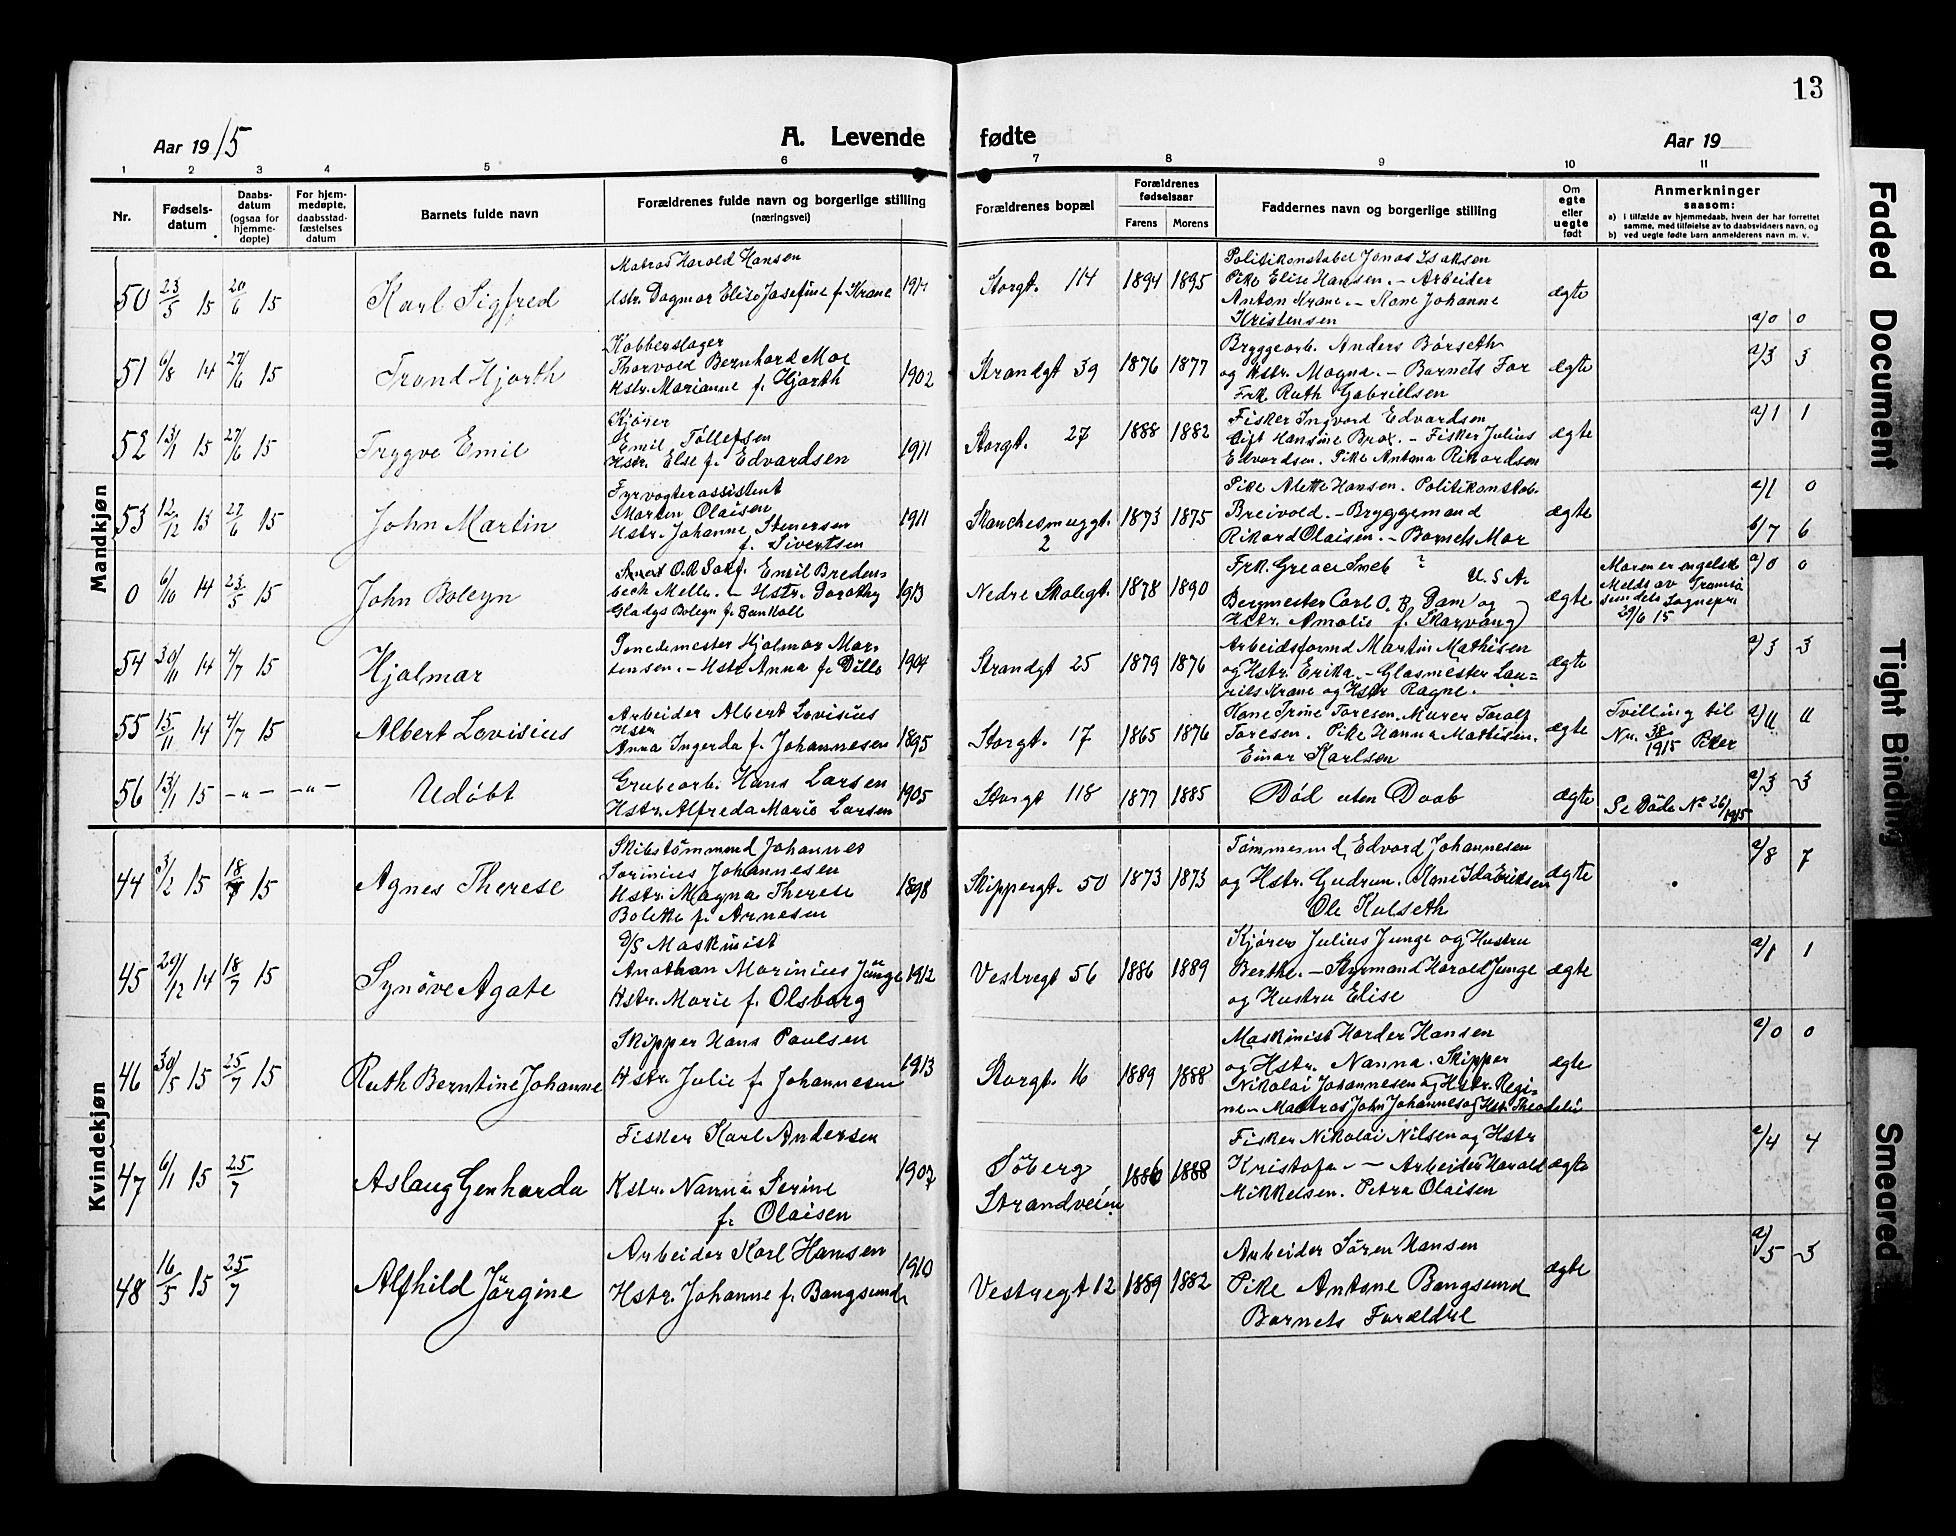 13
Aar 1915
A. Levende fødte
Aar 19
1 2 3 4 5 6 7 8 9 10 11
Nr.
Fødsels-
datum
Daabs-
datum
(ogsaa for
hjemme-
døpte)
For hjem-
medøpte,
daabsstad-
fæstelses
datum
Barnets fulde navn
Forældrenes fulde navn og borgerlige stilling
(næringsvei)
Forældrenes bopæl
Forældrenes
fødselsaar
Farens Morens
Faddernes navn og borgerlige stilling
Om
egte
eller
uegte
født
Anmerkninger
saasom:
a) i tilfælde av hjemmedaab, hvem der har forrettet
samme, med tilføielse av to daabsvidners navn, og
b) ved uegte fødte barn anmelderens navn m. v.
Mandkjøn
50 23/5 15 20/6 15 Karl Sigfred
Matros Harold Hansen
Hstr. Dagmar Elise Josefine f. Krane 1914
Storgt. 114 1894 1895
Politikonstabel Jonas Isaksen
Pike Elise Hansen. – Arbeider
Anton Krane. – Kone Johanne
Kristensen
ægte
a/0 0
51 6/8 14 27/6 15 Trond Hjorth
Kobberslager
Thorvald Bernhard Moe
Hstr. Marianne f. Hjorth 1902
Strandgt 39 1876 1877
Bryggearb. Anders Børseth
og Hstr. Magna. – Barnets Far
Frk Ruth Gabrielsen
ægte
a/3 3
52 13/1 15 27/6 15 Trygve Emil
Kjører
Emil Tollefsen
Hstr. Else f. Edvardsen 1911
Storgt. 27 1888 1882
Fisker Ingvard Edvardsen
Gift Hansine Brox. – Fisker Julius
Edvardsen. Pike Antona Rikardsen
ægte
a/1 1
53 12/12 13 27/6 15 John Martin
Fyrvogterassistent
Martin Olaisen
Hstr. Johanne Stenersen
f. Sivertsen 1911
Skanchesmuggt.
2
1873 1875
Pike Alette Hansen. Politikonstab.
Breivold. – Bryggemand
Rikard Olaisen. – Barnets Mor
ægte
a/1 0
b/7 6
0 6/10 14 23/5 15 John Boleyn
Emil Breden-
bech Melle. – Hstr. Dorothy
Gladys Boleyn f. 1913
Nedre Skolegt. 1878 1890
Frk. ?
U. S A.
Bergmester Carl O. B. Dam og
Hstr. Amalie f. Skarvang
ægte
Moren er engelsk
Meldt av Tromsø-
sundets Sognepr.
29/6 15
a/0 0
54 30/11 14 4/7 15 Hjalmar
Hjalmar Mor-
tensen. – Hstr Anna f. Dille 1904
Strandgt 25 1879 1876
Arbeidsformd Martin Mathisen
og Hstr. Erika. – Glasmester Lau-
rits Krane og Hstr Ragne.
ægte
a/3 3
55 15/11 14 4/7 15 Albert Lovisius
Arbeider Albert Lovisius
Hstr
Anna Ingerda f. Johannesen 1895
Storgt. 17 1865 1876
Kone Trine Toresen. Murer Toralf
Toresen. Pike Hanna Mathisen.
Einar Karlsen
ægte
Tvilling til
Nr. 38/1915 Piker
a/11 11
56 13/1 15 –„– –„– Udøbt
Grubearb. Hans Larsen
Hstr. Alfreda Marie Larsen 1905
Storgt 118 1877 1885
Död uten Daab
ægte
Se Döde No 26/1915
a/3 3
Kvindekjøn
44 3/2 15 18/7 15 Agnes Therese
Skibstømmermd Johannes
Sorinius Johannesen
Hstr. Magna Therese
Bolette f. Arnesen 1898
Skippergt. 50 1873 1873
Tømmermd, Edvard Johannesen
og Hstr. Gudrun. Kone Ida Eriksen
Ole Kulseth
ægte
a/8 7
45 29/12 14 18/7 15 Synöve Agate
D/S Maskinist
Anathan Marinius Junge
Hstr. Marie f. Olsborg 1912
Vestregt 56 1886 1889
Kjører Julius Junge og Hustru
Berthe. – Styrmand Harold Junge
og Hustru Elise
ægte
a/1 1
46 30/5 15 25/7 15 Ruth Berntine Johanne
Skipper Hans Paulsen
Hstr. Julie f. Johannesen 1913
Storgt. 16 1889 1888
Maskinist Harder Hansen
og Hstr. Nanna. Skipper
Nikolai Johannesen og Hstr. Regi-
ne – Matros John Johannes og Hstr. Theodelie
ægte
a/0 0
47 6/1 15 25/7 Aslaug Genharda
Fisker Karl Andersen
Hstr. Nanna Serine
f. Olaisen 1907
Söberg
Strandveien
1886 1888
Fisker Nikolai Nilsen og Hstr
Kristofa – – Arbeider Harald
Mikkelsen. Petra Olaisen
ægte
a/4 4
48 16/5 15 25/7 Alfhild Jörgine
Arbeider Karl Hansen
Hstr. Johanne f. Bangsund 1910
Vestregt 12 1889 1882
Arbeider Sören Hansen
Pike Antone Bangsund
Barnets Forældre
ægte
a/5 3
Faded Document
Tight Binding
Smeared